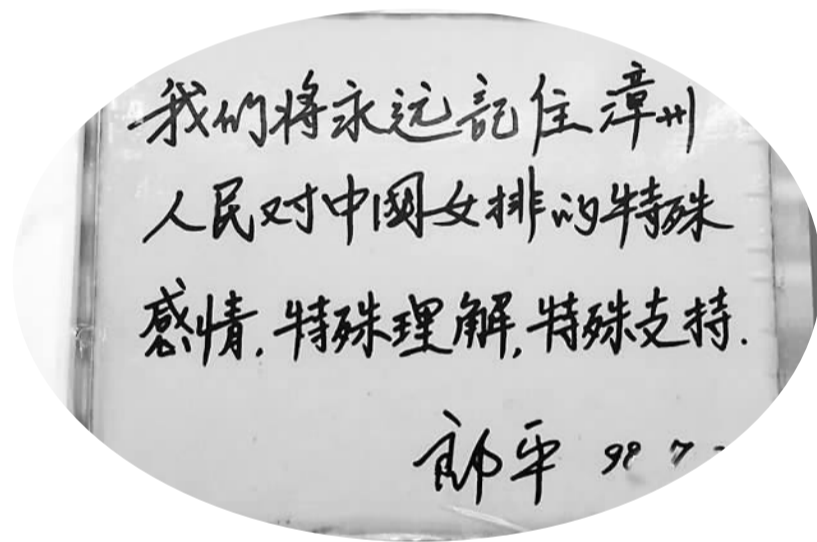 我们将永远記住漳州
人民对中國女排的特殊
感情.特殊理解,特殊支持.
郎平 98 7